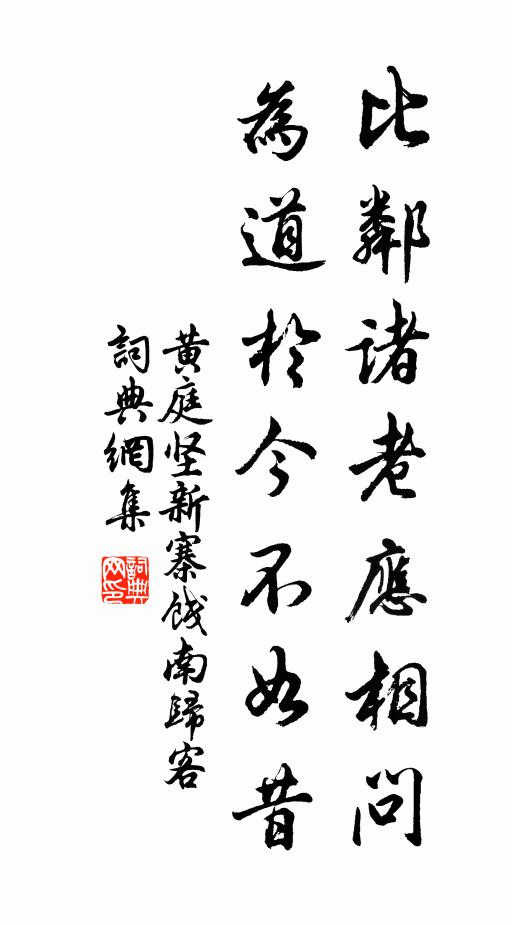 比鄰諸老應相問
為道於今不如昔
黄庭坚新寨饯南歸客
詞典網集
詞典網印